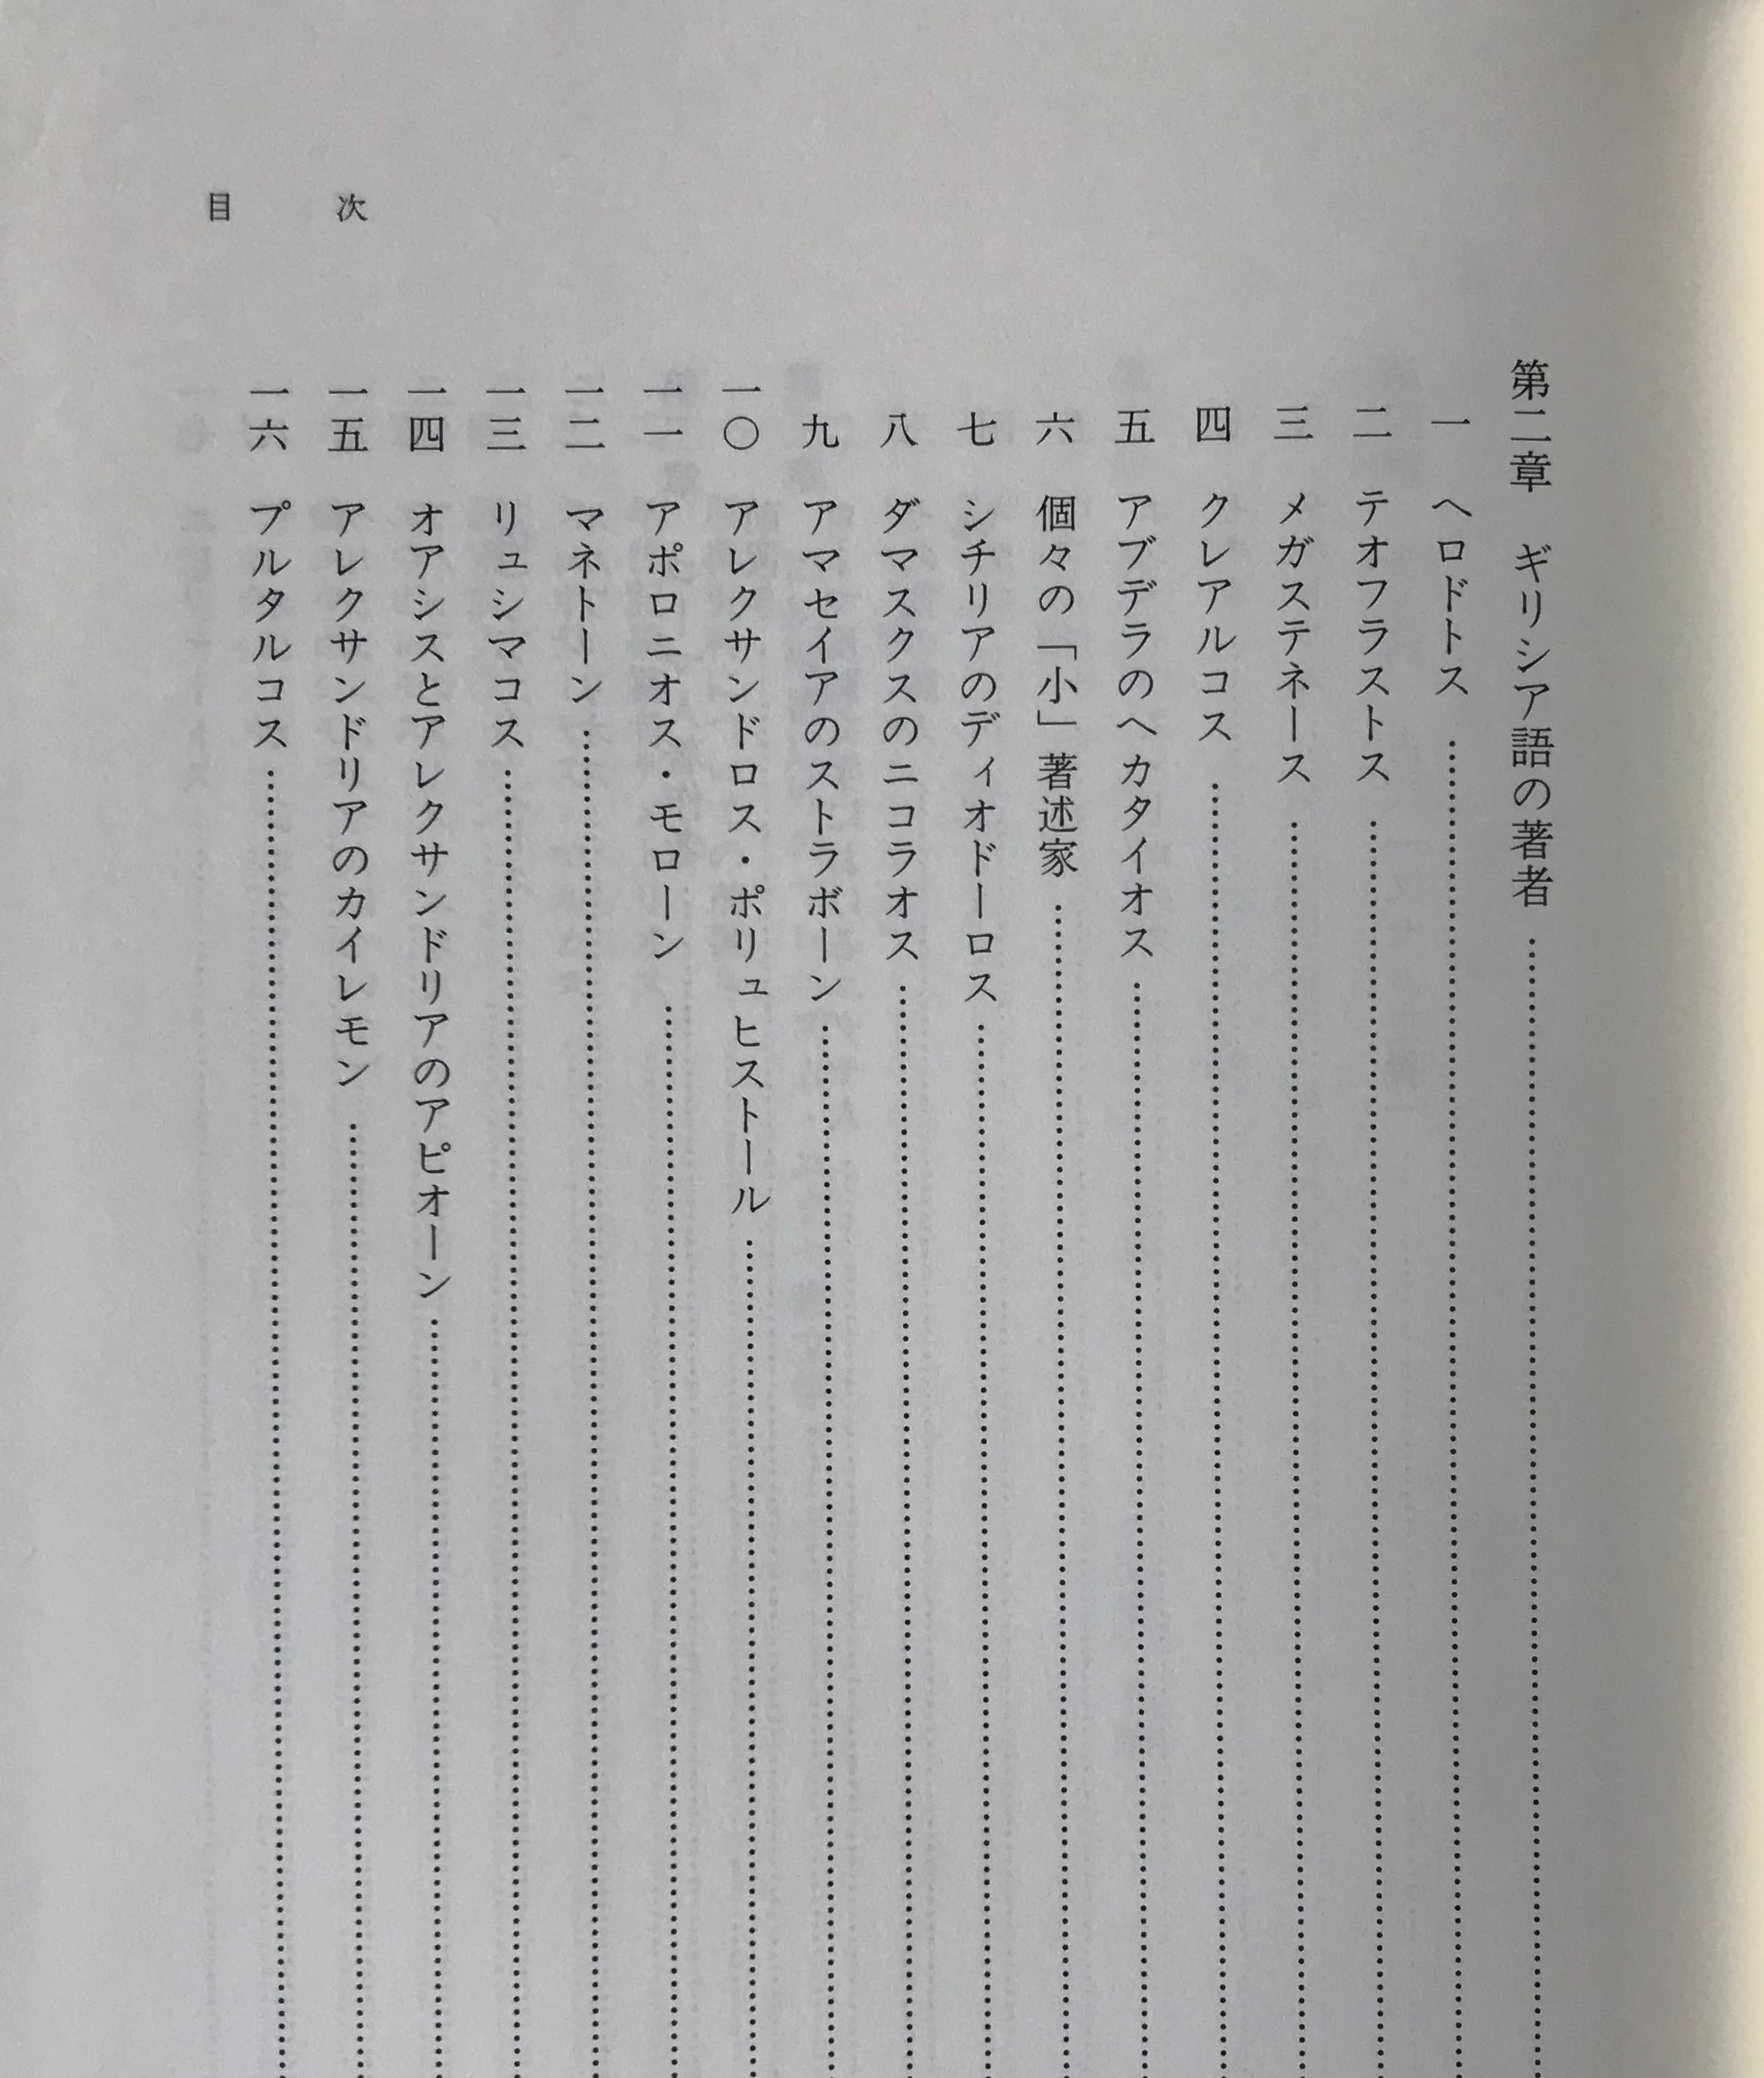 目次
第二章 ギリシア語の著者
一 ヘロドトス
二 テオフラストス
三 メガステネース
四 クレアルコス
五 アブデラのヘカタイオス
六 個々の「小」著述家
七 シチリアのディオドーロス
八 ダマスクスのニコラオス
九 アマセイアのストラボーン
一〇 アレクサンドロス・ポリュヒストール
一一 アポロニオス・モローン
一二 マネトーン
一三 リュシマコス
一四 オアシスとアレクサンドリアのアピオーン
一五 アレクサンドリアのカイレモン
一六 プルタルコス